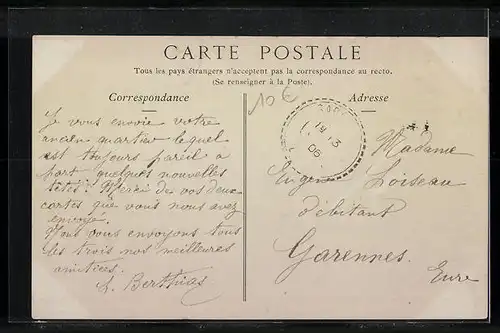 CARTE POSTALE
Tous les pays étrangers n'acceptent pas la correspondance au recto.
(Se renseigner à la Poste).
Correspondance
Adresse
10 €
19 13
06
Je vous envoie votre
ancien quartier lequel
est toujours pareil à
part quelques nouvelles
têtes! Merci de vos deux
cartes que vous nous avez
envoyé.
Nous vous envoyons tous
les trois nos meilleures
amitiées.
L. Berthias
Madame
Eugène Loiseau
débitant
Garennes.
Eure